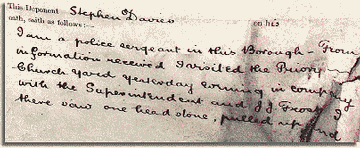 This Deponent Stephen Davies on his
oath, saith as follows:
I am a police sergeant in this Borough - From
information received I visited the Priory
Church Yard yesterday evening in company
with the Superintendent and J J Frost I
there saw one head stone, pulled up and